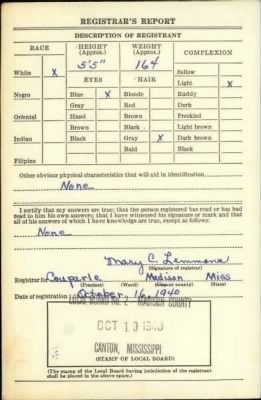 REGISTRAR'S REPORT
DESCRIPTION OF REGISTRANT
RACE HEIGHT (Approx.) WEIGHT (Approx.) COMPLEXION
5'5" 164
White X EYES HAIR Sallow
Light X
Negro Blue X Blonde Ruddy
Gray Red Dark
Oriental Hazel Brown Freckled
Brown Black Light brown
Indian Black Gray X Dark brown
Bald Black
Filipino
Other obvious physical characteristics that will aid in identification
None
I certify that my answers are true; that the person registered has read or has had
read to him his own answers; that I have witnessed his signature or mark and that
all of his answers of which I have knowledge are true, except as follows:
None
Mary C. Lemmons
(Signature of registrar)
Registrar for Couparle Madison Miss
(Precinct) (Ward) (City or county) (State)
Date of registration October 16 1940
LOCAL BOARD NO. 2 MADISON COUNTY
OCT 19 1940
CANTON, MISSISSIPPI
(STAMP OF LOCAL BOARD)
(The stamp of the Local Board having jurisdiction of the registrant
shall be placed in the above space.)